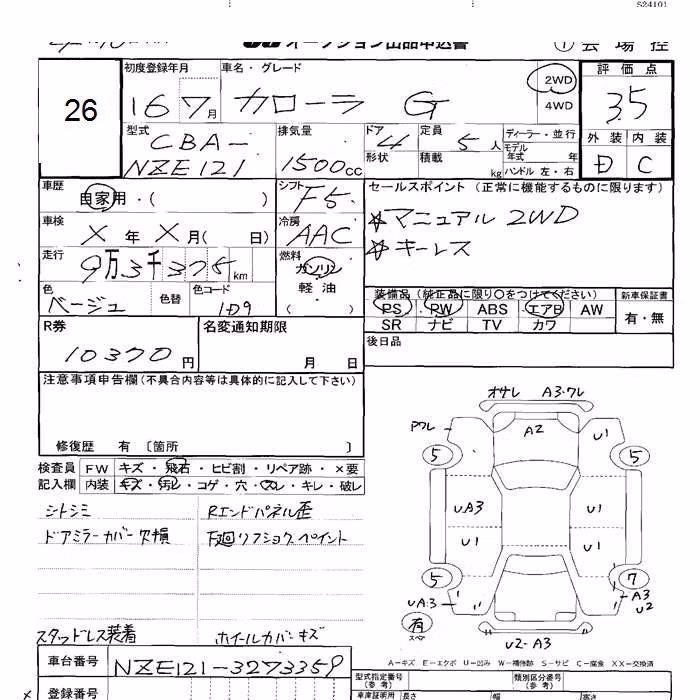 S24101
オークション出品申込書 ① 会場控
26
初度登録年月 車名・グレード 2WD 評価点
16 7月 カローラ G 4WD 3.5
型式 排気量 ドア 定員 ディーラー・並行 外装 内装
CBA- 4 5人 モデル年式 年
NZE121 1500cc 形状 積載 kg ハンドル 左・右 D C
車歴 シフト セールスポイント (正常に機能するものに限ります)
自家用・( ) F5 ☆マニュアル 2WD
車検 冷房 ☆キーレス
X年X月( 日) AAC
走行 燃料
9万3千375km ガソリン
色 色替 色コード 軽油
ベージュ 1D9
装備品 (純正品に限り○をつけてください) 新車保証書
PS PW ABS エアB AW 有・無
SR ナビ TV カワ
R券 名変通知期限 後日品
10370円 月 日
注意事項申告欄(不具合内容等は具体的に記入して下さい)
修復歴 有 〔箇所 〕
検査員 FW キズ・飛石・ヒビ割・リペア跡・×要
記入欄 内装 キズ・汚レ・コゲ・穴・スレ・キレ・破レ
シトシミ Rエンドパネル歪
ドアミラーカバー欠損 下廻リフショクペイント
スタッドレス装着 ホイルカバーキズ
オサレ A3・ワレ
Pワレ A2 U1
5 5
UA3 U1
U1 U1
5 7
UA3 A3 U2
有 スペア
U2-A3
A-キズ E-エクボ U-凹み W-補修跡 S-サビ C-腐食 XX-交換済
車台番号 NZE121-3273359 型式指定番号(参考) 類別区分番号(参考)
登録番号 車庫証明用 長さ 幅 高さ